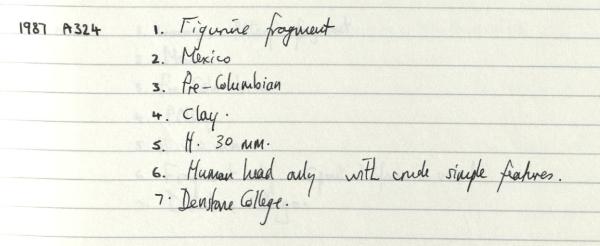 1987 A324 1. Figurine fragment
2. Mexico
3. Pre-Columbian
4. Clay.
5. H. 30 mm.
6. Human head only with crude simple features.
7. Denstone College.